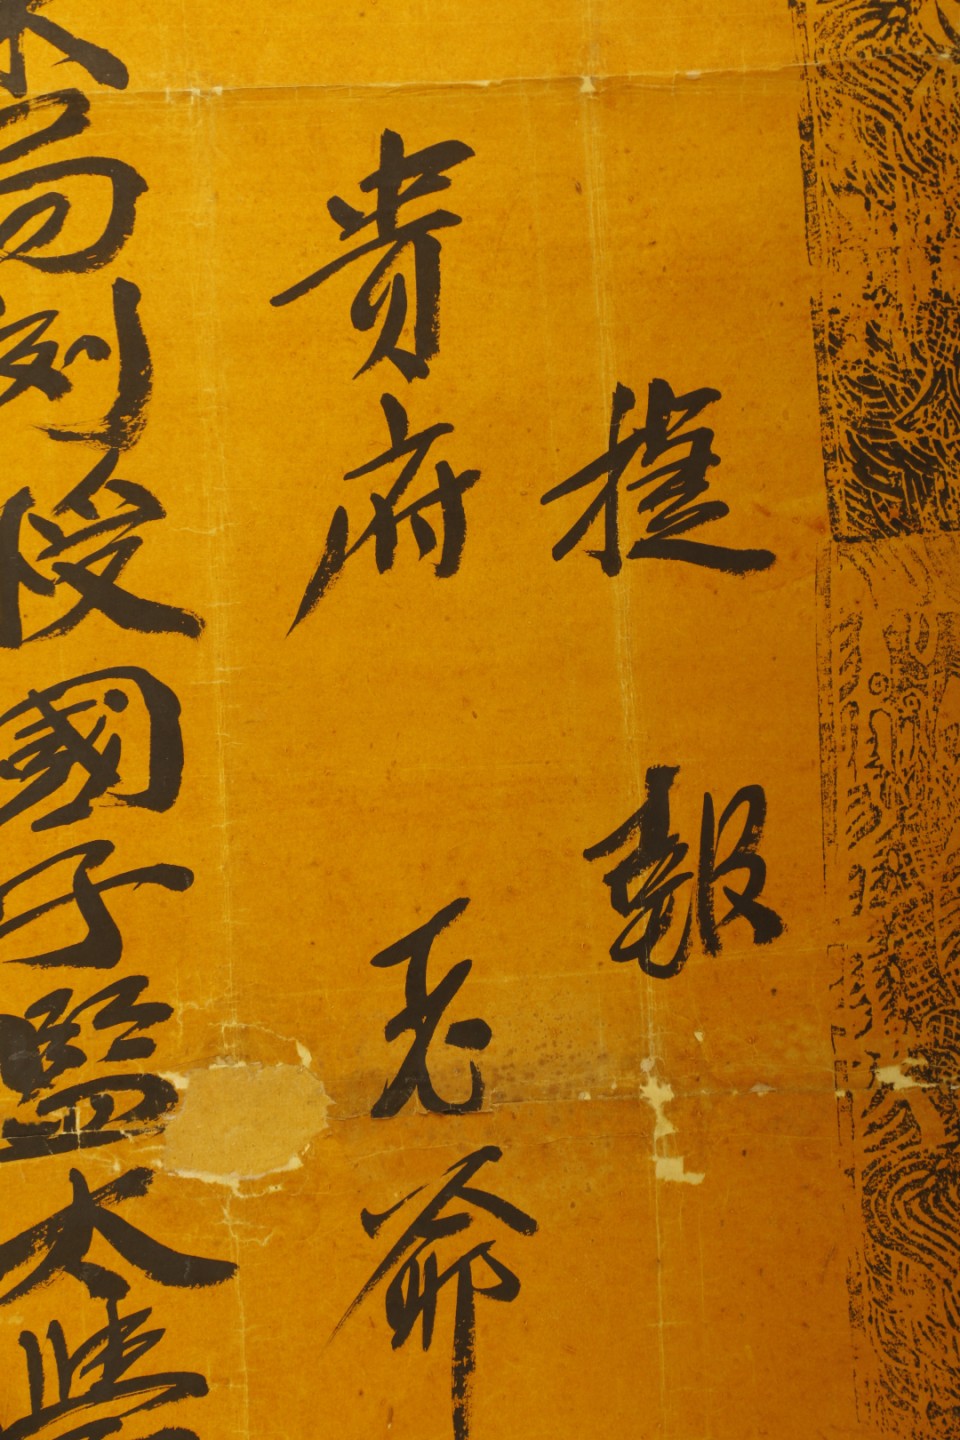 捷報
貴府老爺
例授國子監太學